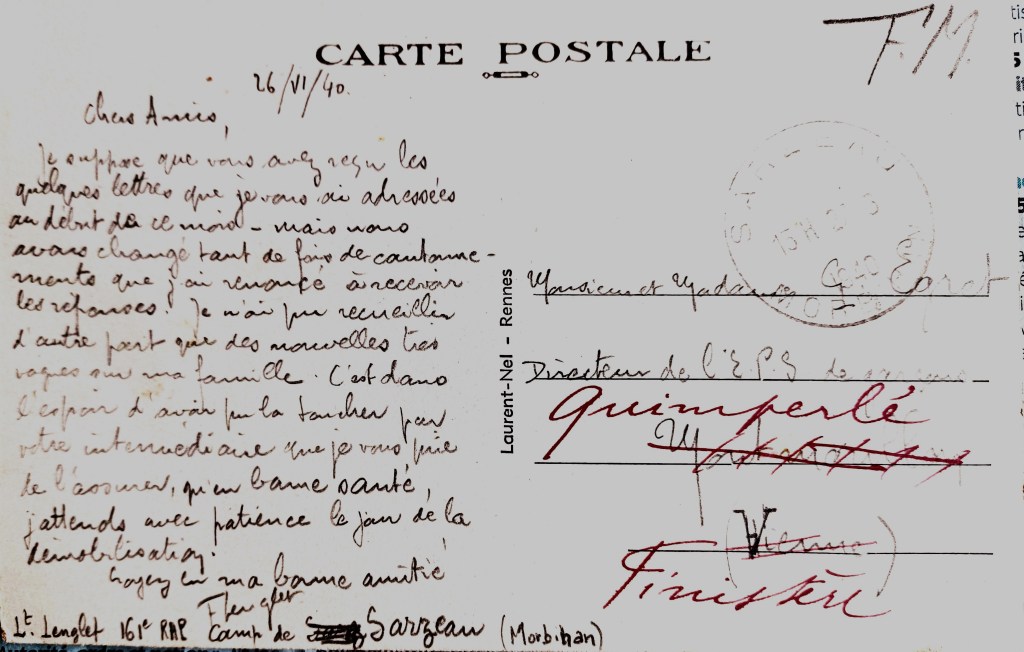 CARTE POSTALE
F.M.
26/VI/40.
Chers Amis,
Je suppose que vous avez reçu les
quelques lettres que je vous ai adressées
au début de ce mois - mais nous
avons changé tant de fois de cantonne-
ments que j'ai renoncé à recevoir
les réponses. Je n'ai pu recueillir
d'autre part que des nouvelles très
vagues sur ma famille. C'est dans
l'espoir d'avoir pu la toucher par
votre intermédiaire que je vous prie
de l'assurer, qu'en bonne santé,
j'attends avec patience le jour de la
démobilisation.
Croyez en ma bonne amitié
Flenglet
Lt. Lenglet 161e RAP Camp de Sarzeau (Morbihan)
Laurent-Nel - Rennes
Monsieur et Madame
Directeur de l'E.P.S de garçons
Quimperlé
(Vienne)
Finistère